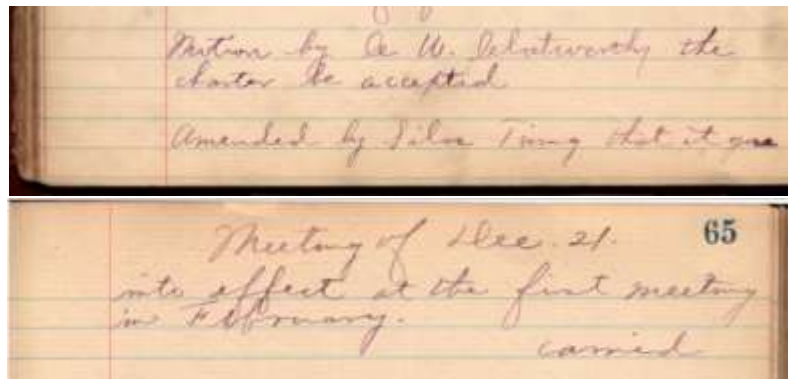 Motion by A. W. Clatworthy the
charter be accepted
Amended by Silas Ting that it goe
Meeting of Dec. 21. 65
into effect at the first meeting
in February.
carried